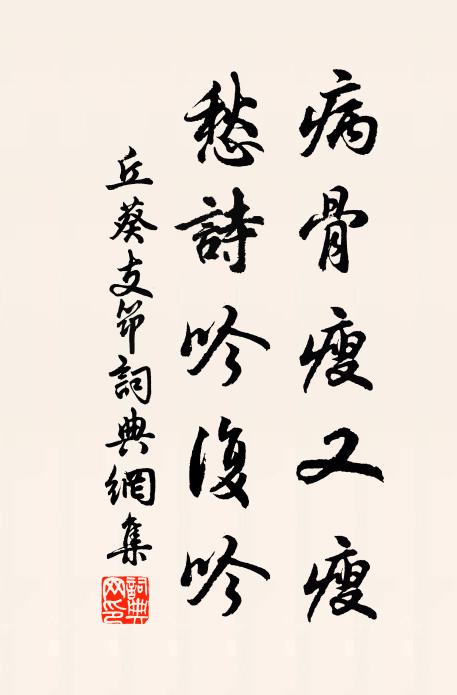 病骨瘦又瘦
愁詩吟復吟
丘葵支笻詞典網集
詞典網印